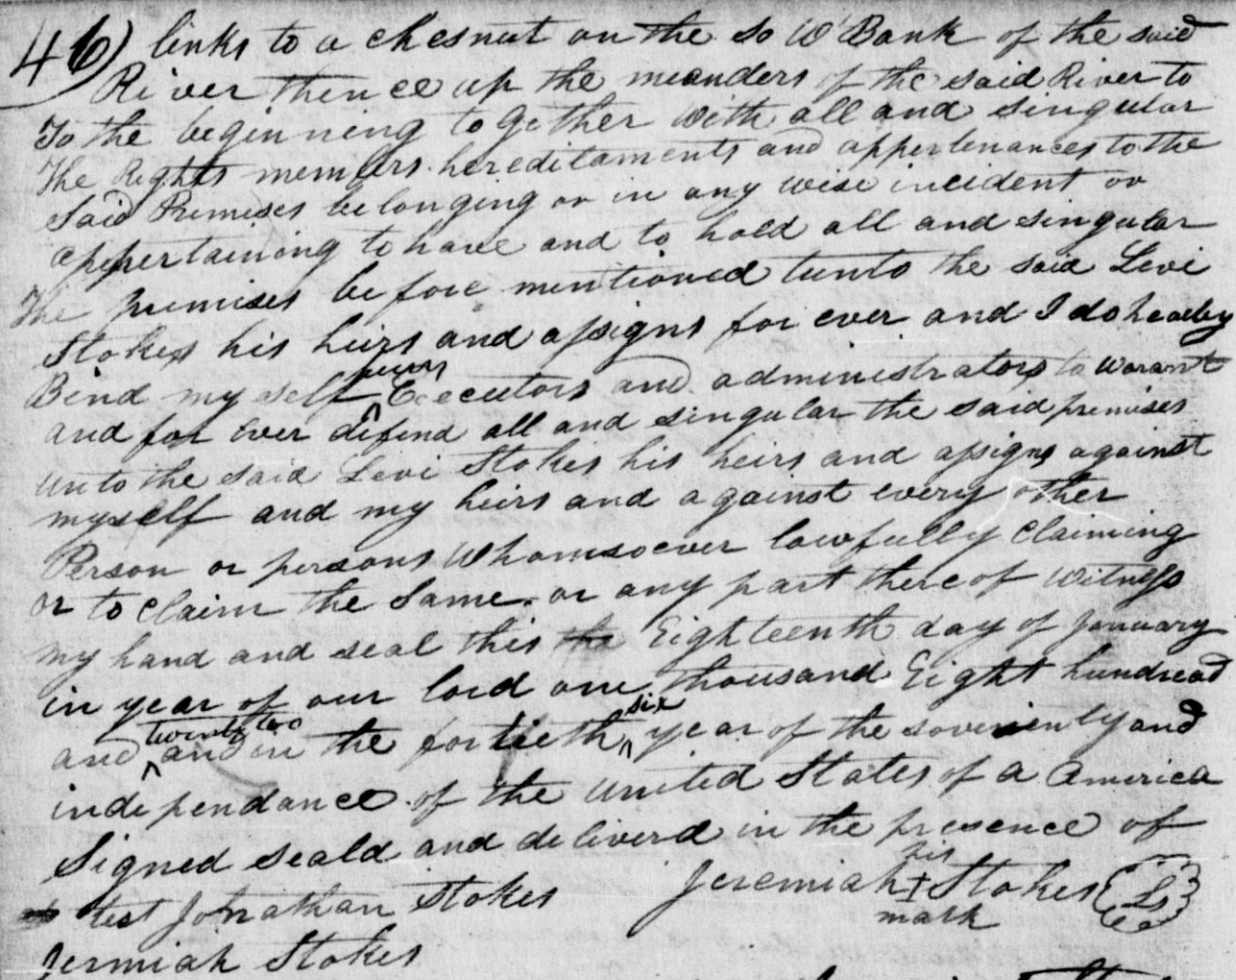 46) links to a chesnut on the So W Bank of the said
River thence up the meanders of the said River to
To the beginning together with all and singular
The Rights members hereditaments and appertenances to the
Said Premises belonging or in any wise incident or
appertaining to have and to hold all and singular
The premises before mentioned tunto the said Levi
Stokes his heirs and assigns for ever and I do heareby
Bind my self heirs Executors and administrators to warant
and for ever defend all and singular the said premises
unto the said Levi Stokes his heirs and assigns against
myself and my heirs and against every other
Person or persons Whomsoever lawfully Claiming
or to Claim the Same or any part there of Witness
my hand and seal this the Eighteenth day of January
in year of our lord one thousand Eight hundread
and twenty two and in the fortieth six year of the soverienty and
independance of the united States of a America
Signed seald and deliverd in the presence of
test Jonathan Stokes Jeremiah his + mark Stokes {LS}
Jermiah Stokes